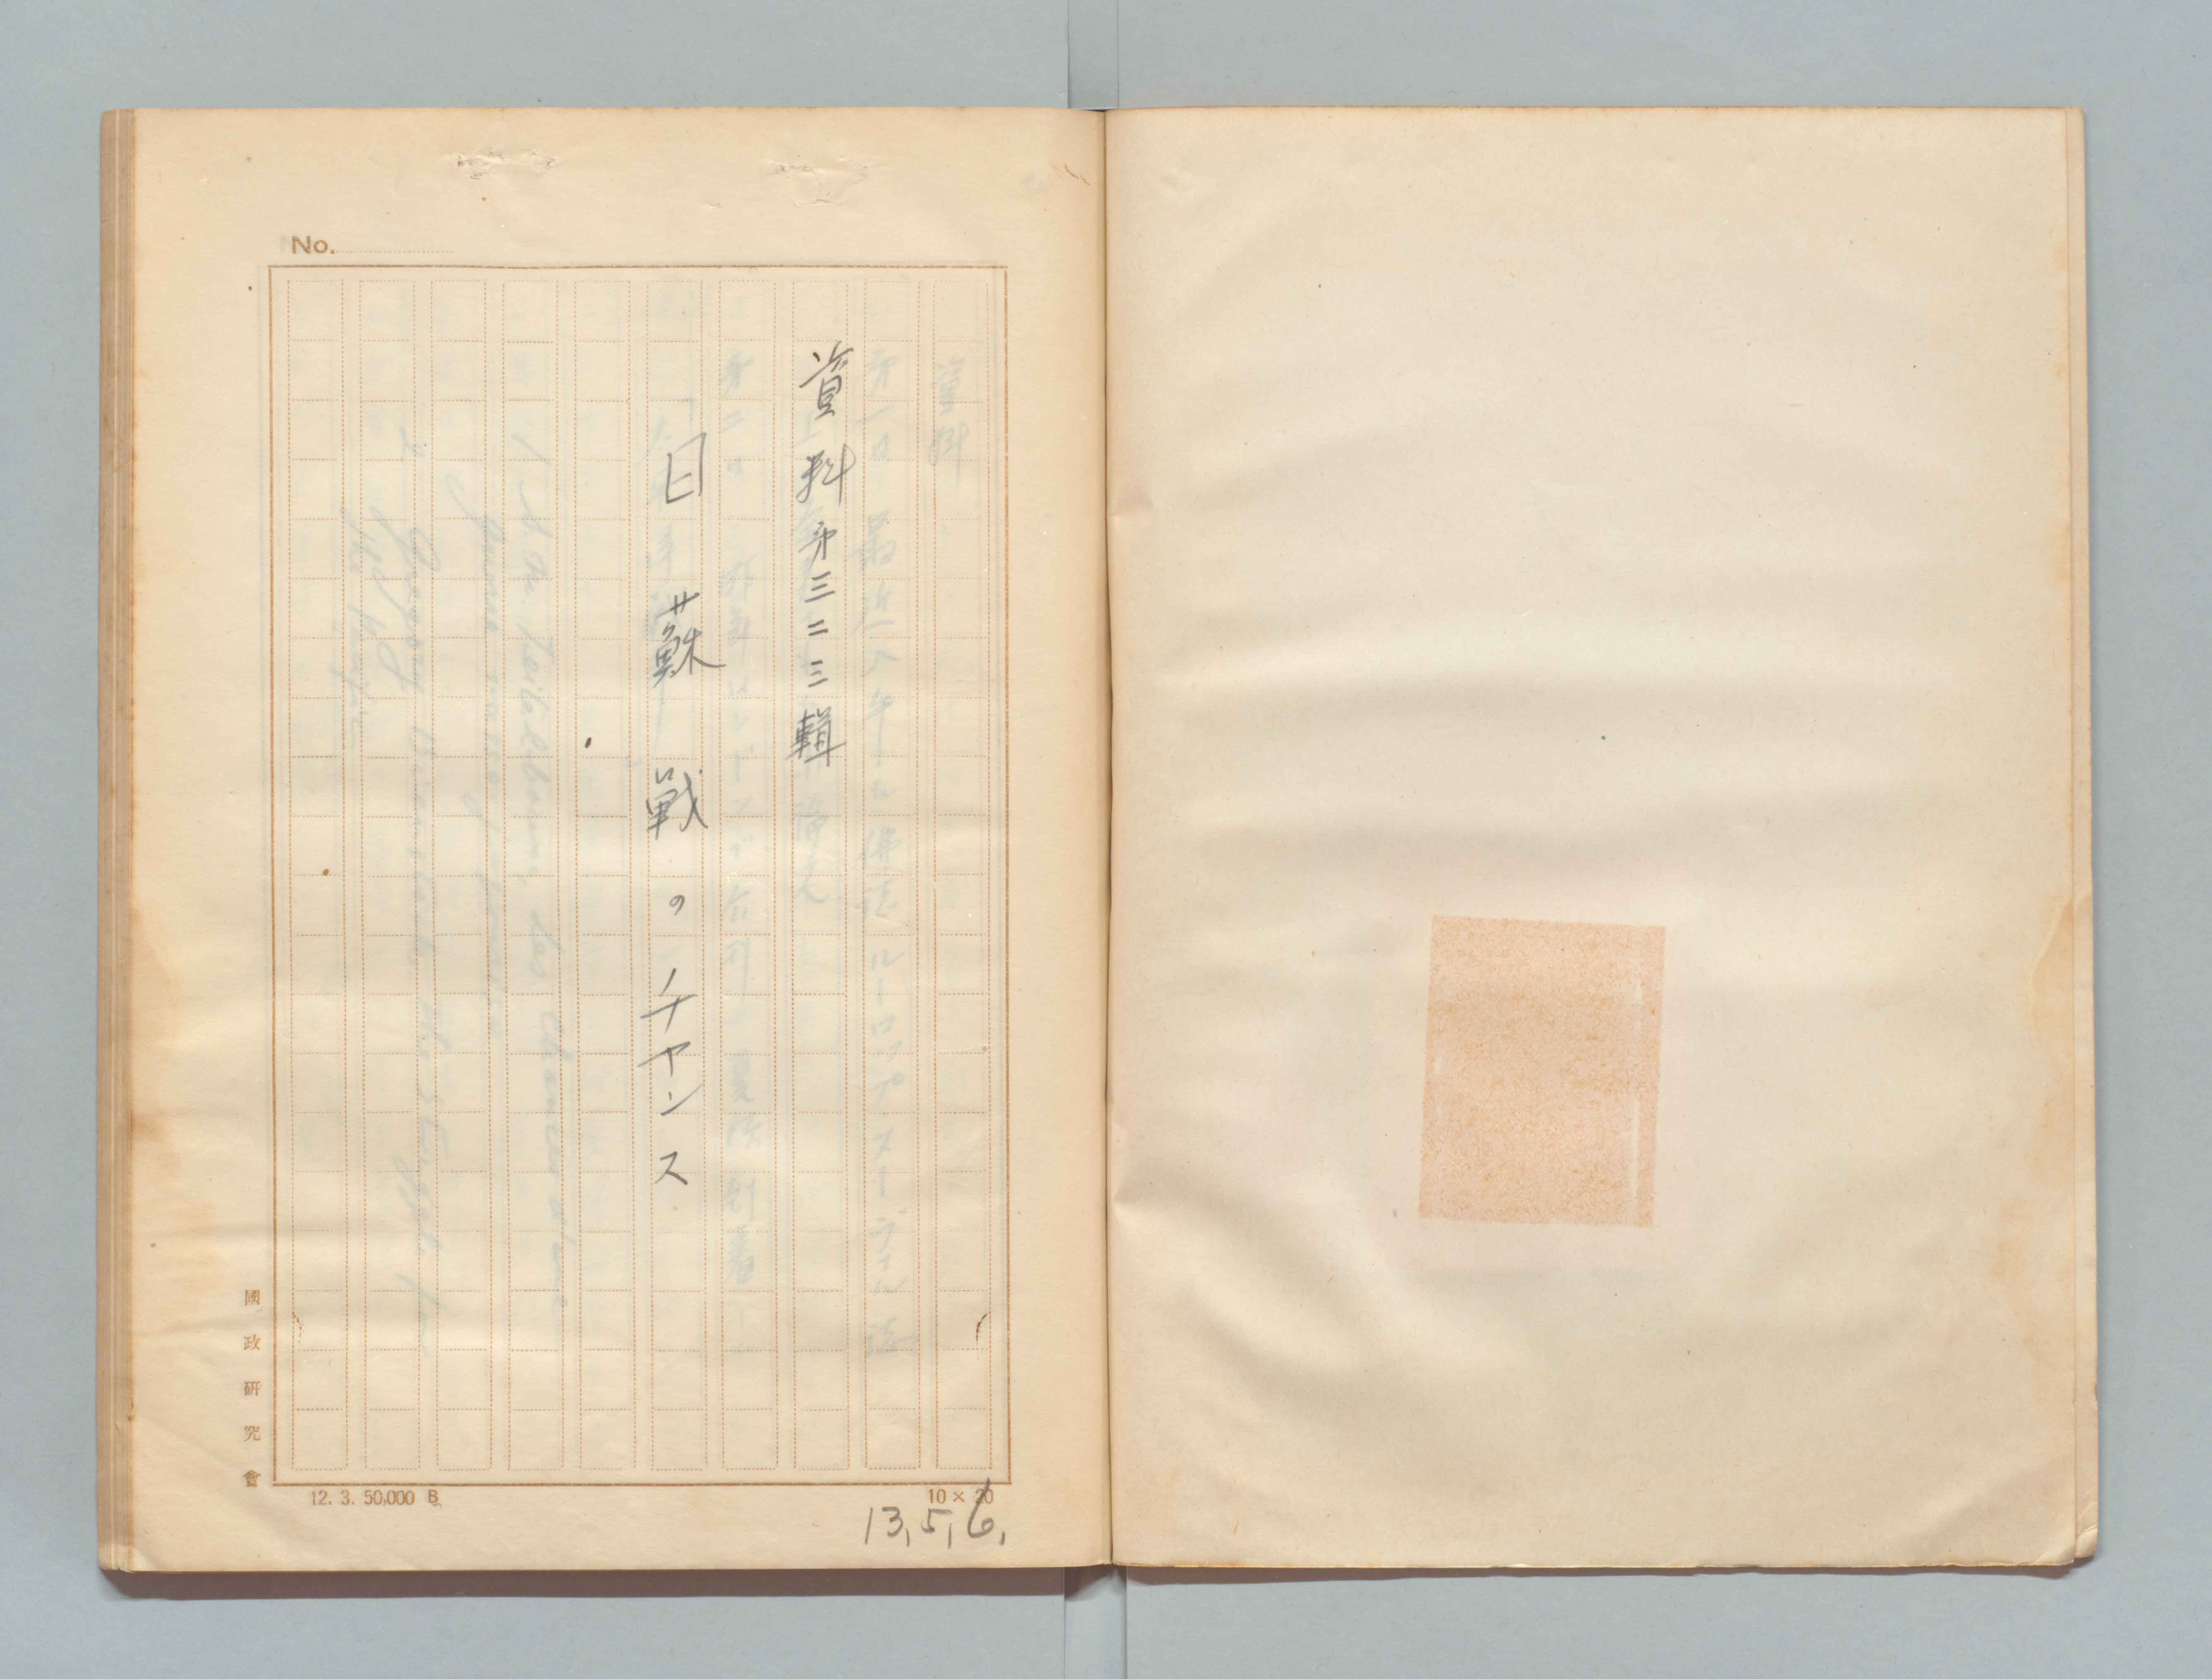 No.
資料第三二三輯
日蘇戦のチヤンス
國政研究會
12. 3. 50,000 B.
10 × 20
13, 5, 6,